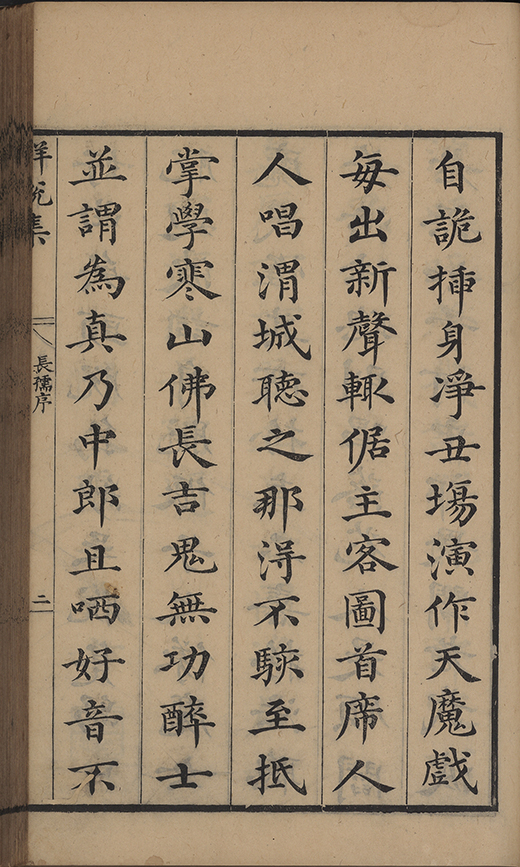 自詭揷身淨丑塲演作天魔戲
每出新聲輙倨主客圖首席人
人唱渭城聽之那得不駭至抵
掌學寒山佛長吉鬼無功醉士
並謂為真乃中郎且哂好音不
觧脫集
長孺序
二